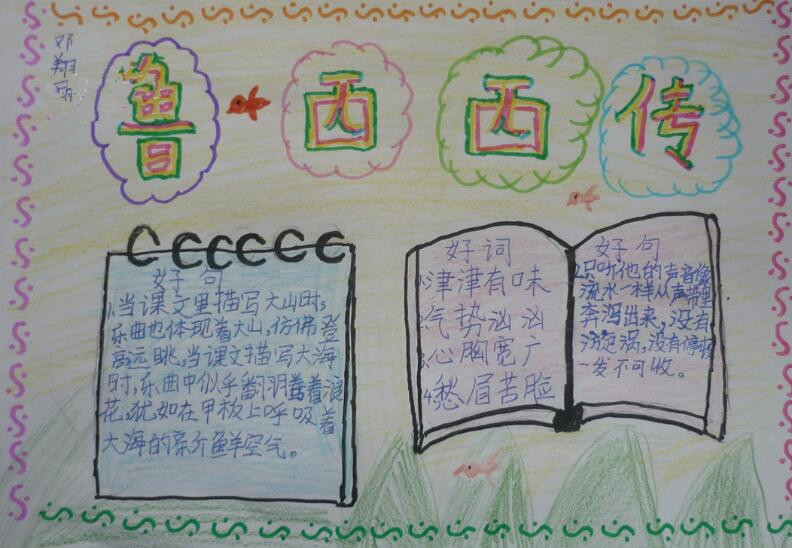 邓翔
鲁西西传
好句
1.当课文里描写大山时，
乐曲也体现着大山，仿佛登
高远眺。当课文描写大海
时，乐曲中似乎翻羽着着浪
花，犹如在甲板上呼吸着
大海的新鲜空气。
好词
1.津津有味
2.气势汹汹
3.心胸宽广
4.愁眉苦脸
好句
只听他的声音像
流水一样从声带里
奔泻出来，没有
漩涡，没有停顿
一发不可收。